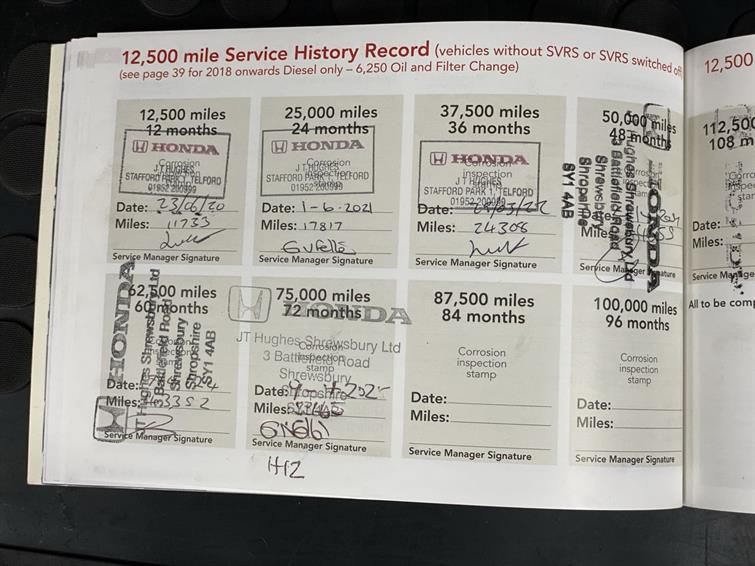 12,500 mile Service History Record (vehicles without SVRS or SVRS switched off
(see page 39 for 2018 onwards Diesel only – 6,250 Oil and Filter Change)
12,500 miles
12 months
HONDA
Corrosion
J T HUGHES
STAFFORD PARK 1, TELFORD
01952 200999
stamp
Date: 23/06/20
Miles: 11733
Service Manager Signature
25,000 miles
24 months
HONDA
Corrosion
J T HUGHES
STAFFORD PARK 1, TELFORD
stamp
Date: 1-6-2021
Miles: 17817
Service Manager Signature
37,500 miles
36 months
HONDA
Corrosion
inspection
J T HUGHES
STAFFORD PARK 1, TELFORD
01952 200999
Date:
Miles: 24308
Service Manager Signature
50,000 miles
48 months
HONDA
JT Hughes Shrewsbury Ltd
3 Battlefield Road
Shrewsbury
Shropshire
SY1 4AB
Date:
Miles:
Service Manager Signature
62,500 miles
60 months
HONDA
JT Hughes Shrewsbury Ltd
3 Battlefield Road
Shrewsbury
Shropshire
SY1 4AB
Date:
Miles: 33352
Service Manager Signature
75,000 miles
72 months
HONDA
JT Hughes Shrewsbury Ltd
Corrosion
3 Battlefield Road
inspection
stamp
Shrewsbury
Shropshire
Date:
Miles:
Service Manager Signature
87,500 miles
84 months
Corrosion
inspection
stamp
Date:
Miles:
Service Manager Signature
100,000 miles
96 months
Corrosion
inspection
stamp
Date:
Miles:
Service Manager Signature
12,500
112,500
108 m
Date:
Miles:
Service Manag
All to be comp